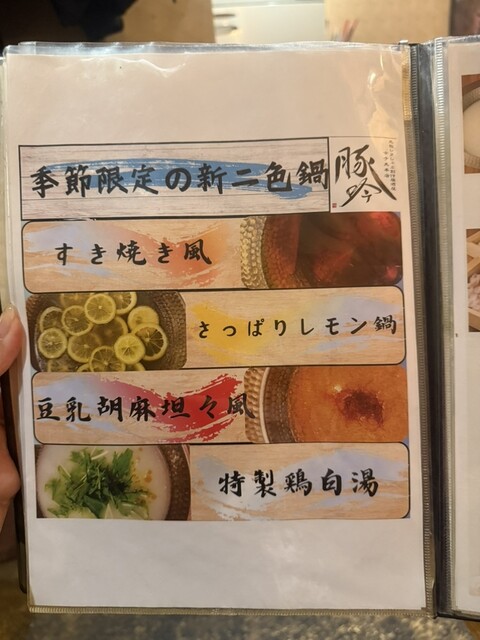 季節限定の新二色鍋
豚吟
すき焼き風
さっぱりレモン鍋
豆乳胡麻坦々風
特製鶏白湯